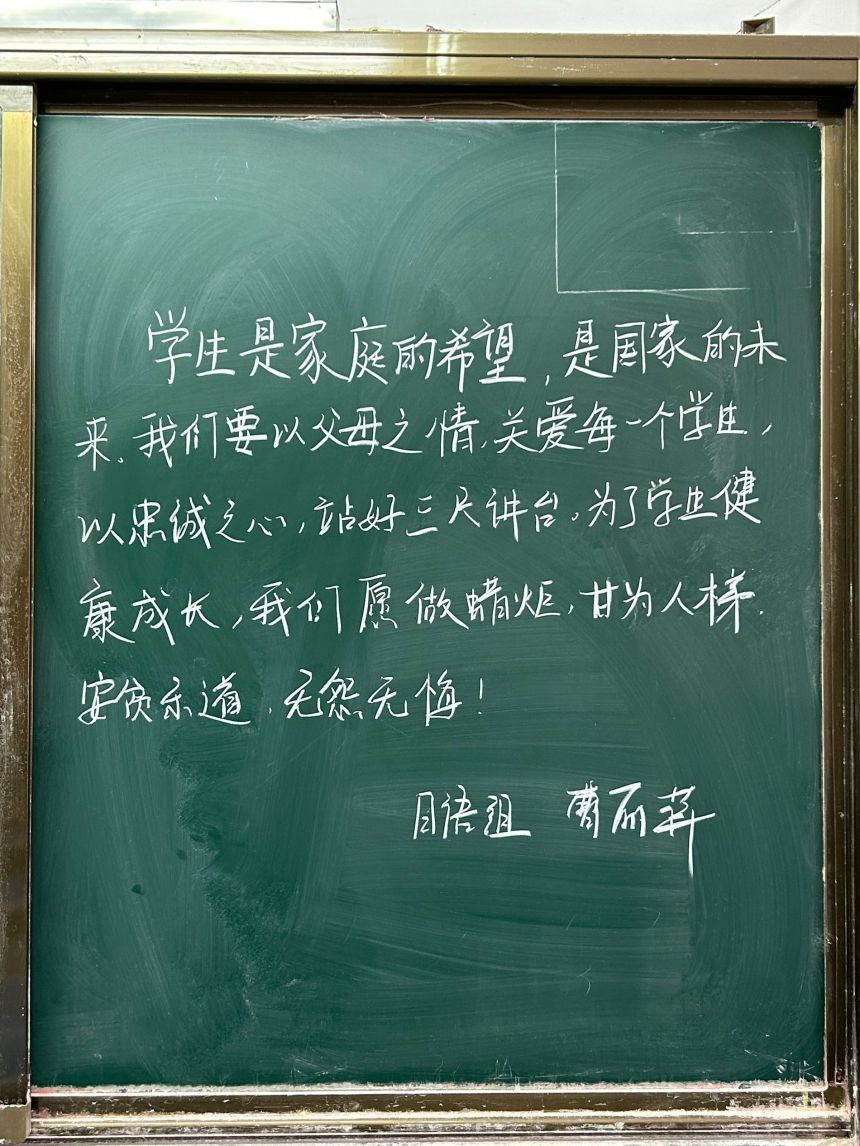 学生是家庭的希望，是国家的未
来。我们要以父母之情，关爱每一个学生，
以忠诚之心，站好三尺讲台。为了学生健
康成长，我们愿做蜡炬，甘为人梯.
安贫乐道，无怨无悔！
日语组 曹丽